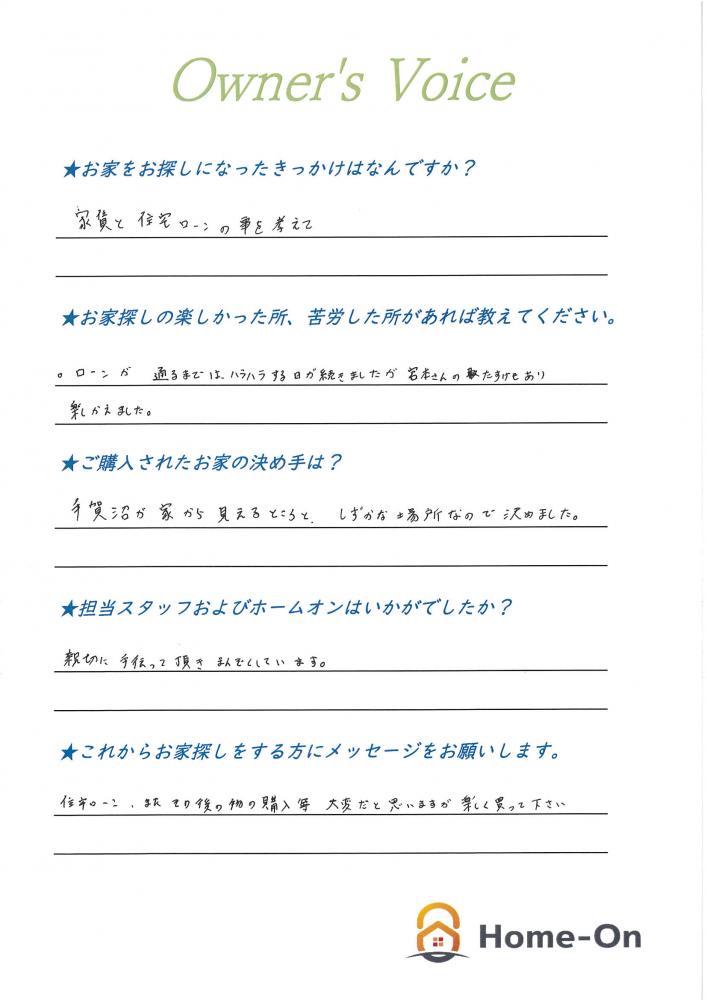 Owner's Voice
★お家をお探しになったきっかけはなんですか？
家賃と 住宅ローンの事を考えて
★お家探しの楽しかった所、苦労した所があれば教えてください。
。ローンが 通るまでは、ハラハラする日が続きましたが 宮本さんの たすけもあり
楽しかえました。
★ご購入されたお家の決め手は？
手賀沼が 家から 見えるところと、しずかな場所なので 決めました。
★担当スタッフおよびホームオンはいかがでしたか？
親切に 手伝って頂き まんぞくしています。
★これからお家探しをする方にメッセージをお願いします。
住宅ローン、また その後の物の購入等 大変だと思いますが 楽しく買って下さい
Home-On